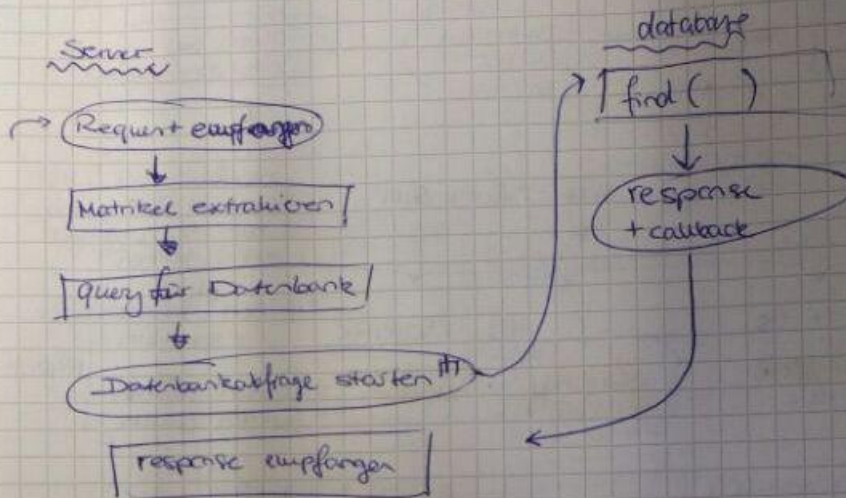 Server
Request empfangen
Matrikel extrahieren
Query für Datenbank
Datenbankabfrage starten
response empfangen
database
find( )
response
+ callback